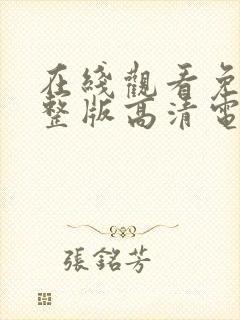 在綫觀看免
整版高清電
張銘芳